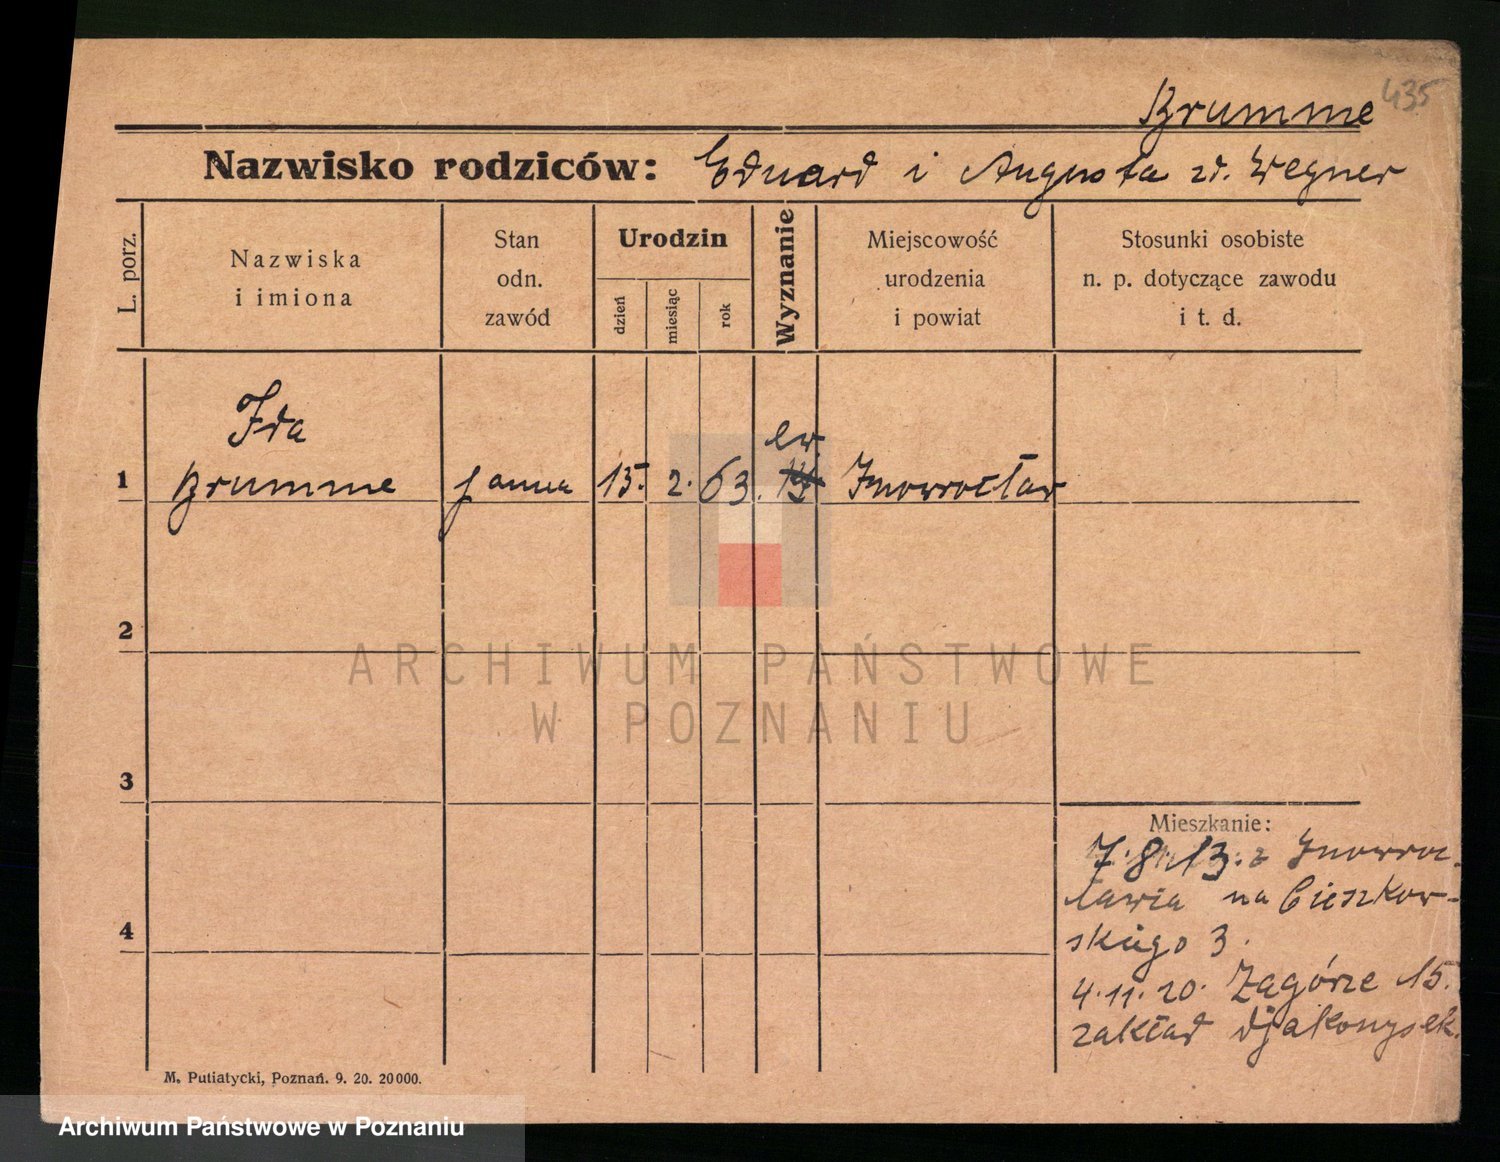 435
Brumme
Nazwisko rodziców: Eduard i Augusta zd. Wegner
L. porz.
Nazwiska
i imiona
Stan
odn.
zawód
Urodzin
dzień
miesiąc
rok
Wyznanie
Miejscowość
urodzenia
i powiat
Stosunki osobiste
n. p. dotyczące zawodu
i t. d.
Ida
ew.
1 Brumme panna 15. 2. 63. Inowrocław
2
3
4
Mieszkanie:
7. 8. 13. z Inowroc-
ławia na Cieszkow-
skiego 3.
4. 11. 20. Zagórze 15.
zakład djakonysek.
M. Putiatycki, Poznań. 9. 20. 20000.
ARCHIWUM PAŃSTWOWE
W POZNANIU
Archiwum Państwowe w Poznaniu